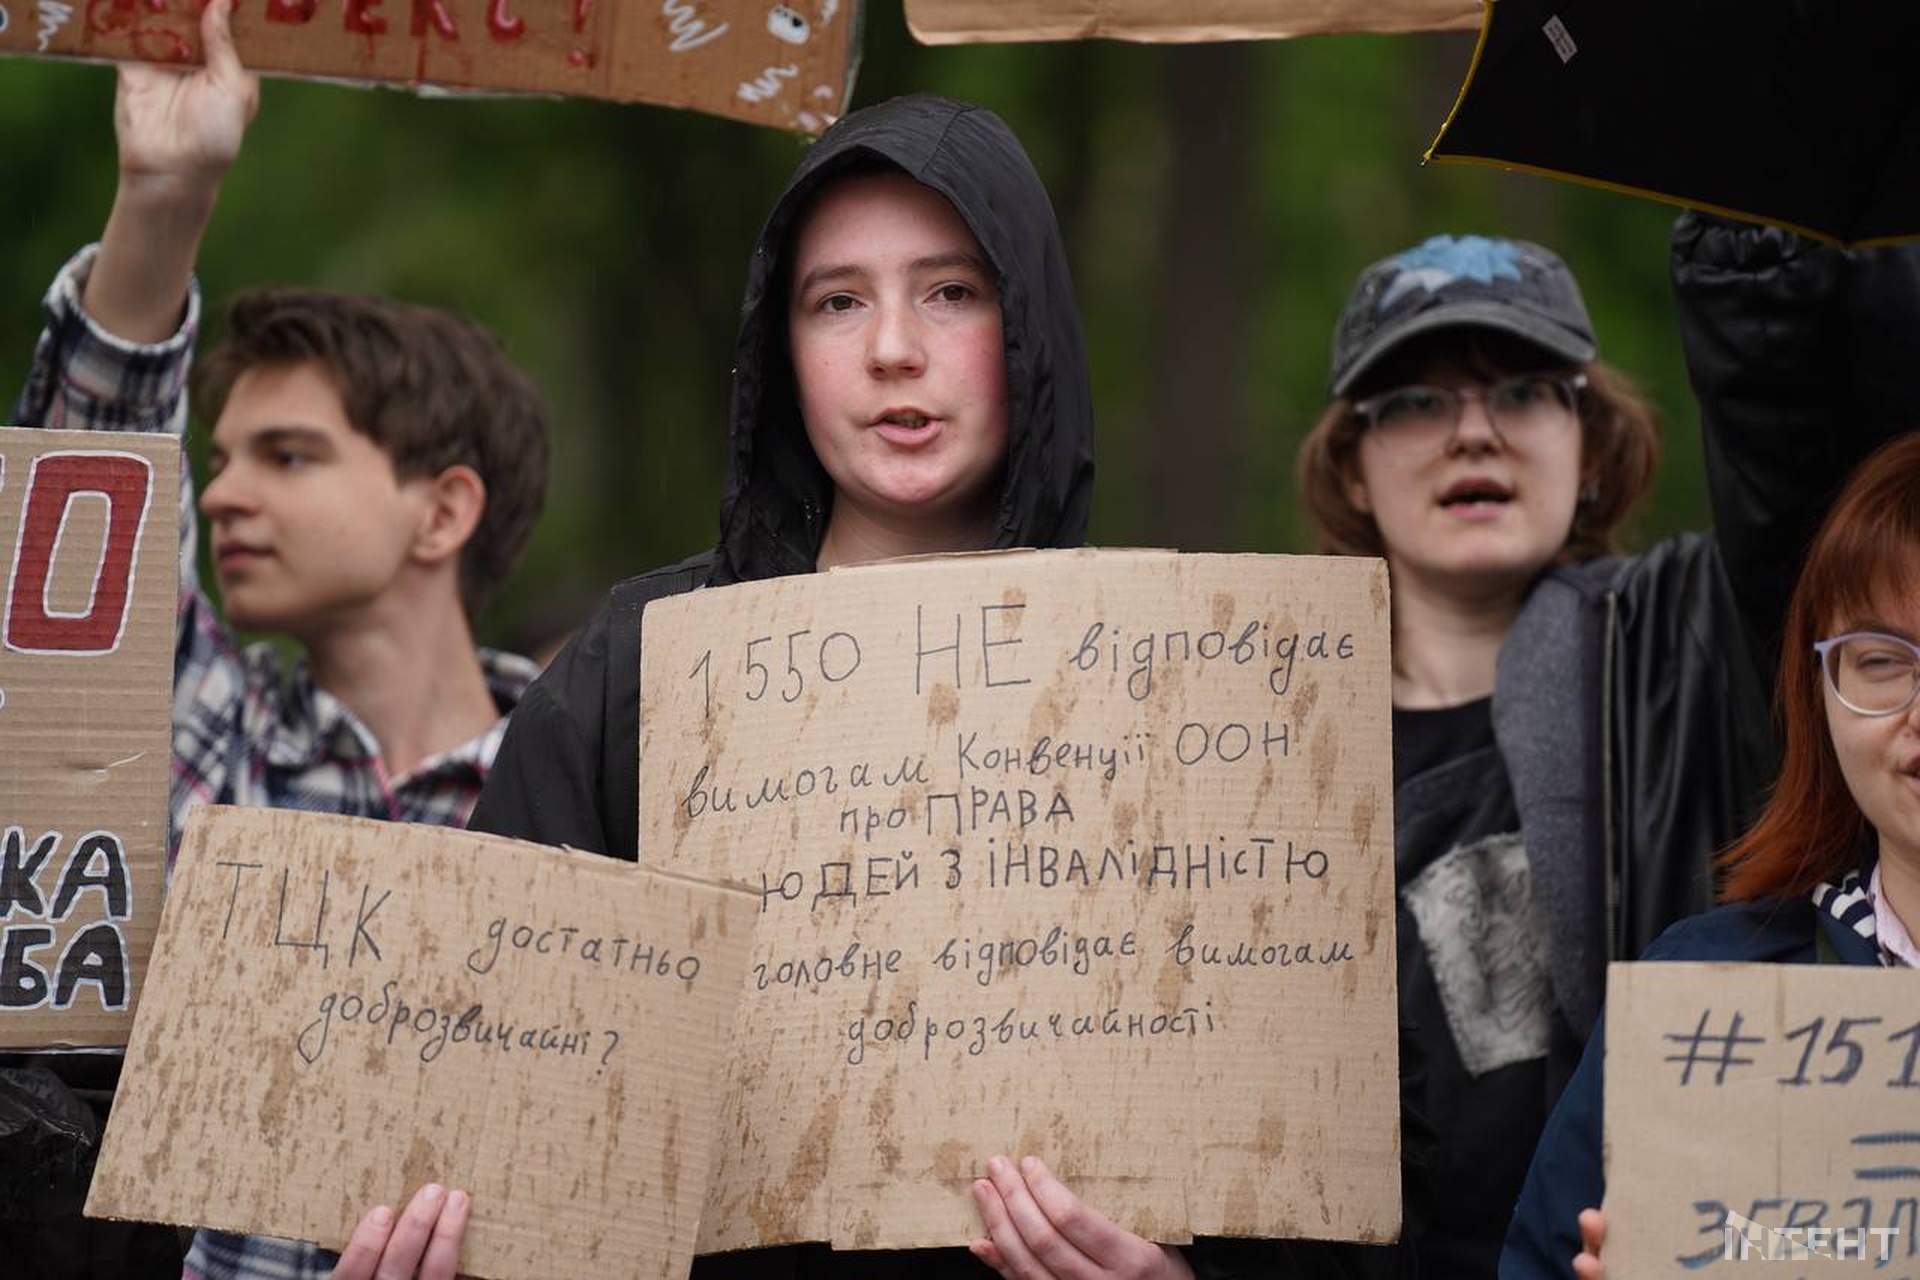 КА
БА
ТЦК достатньо
доброзвичайні?
1550 НЕ відповідає
вимогам Конвенції ООН
про ПРАВА
ЮДЕЙ З ІНВАЛІДНІСТЮ
головне відповідає вимогам
доброзвичайності
#151
ІНТЕНТ